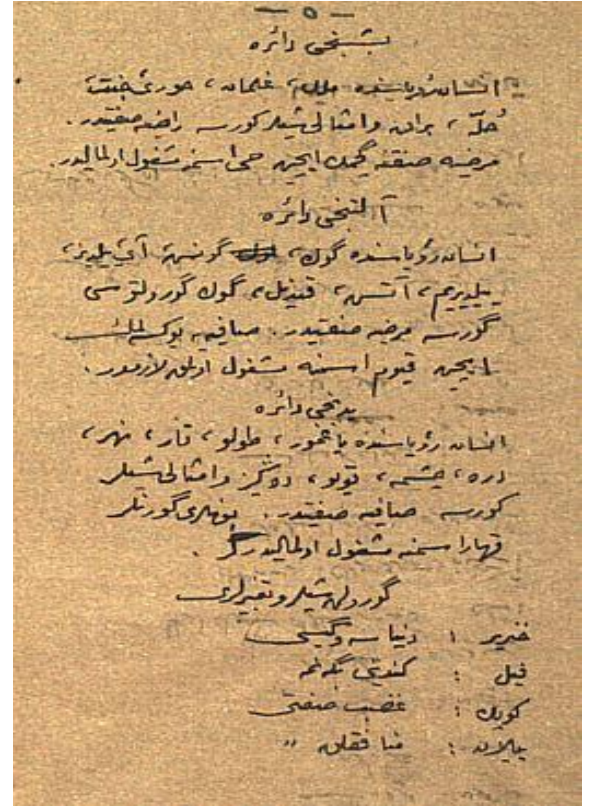 — ٥ —
بشنجی دائره
انسان رؤیاسنده ملك، غلمان، حورئ جنت،
حلّه، براق وامثالی شیلر كورسه راضیه صفتیدر.
مرضیه صفتنه گچمك ایچین حی اسمنه مشغول اولمالیدر.
آلتنجی دائره
انسان رؤیاسنده گوك، گونش، آی، یلدیز،
ییلدیریم، آتش، قندیل، گوك گورولتوسی
گورسه مرضیه صفتیدر. صافیه یه یوكسلمك
ایچین قیوم اسمنه مشغول اولمق لازمدر.
یدنجی دائره
انسان رؤیاسنده یاغمور، طولو، قار، نهر،
دره، چشمه، قویو، دكیز وامثالی شیلر
كورسه صافیه صفتیدر. بونلری گورنلر
قهار اسمنه مشغول اولمالیدرلر.
گورولن شیلر وتعبیرلری
خنزیر : دنیا سوگیسی
فیل : كندینی بگنمه
كوپك : غضب صفتی
ییلان : منافقلق "